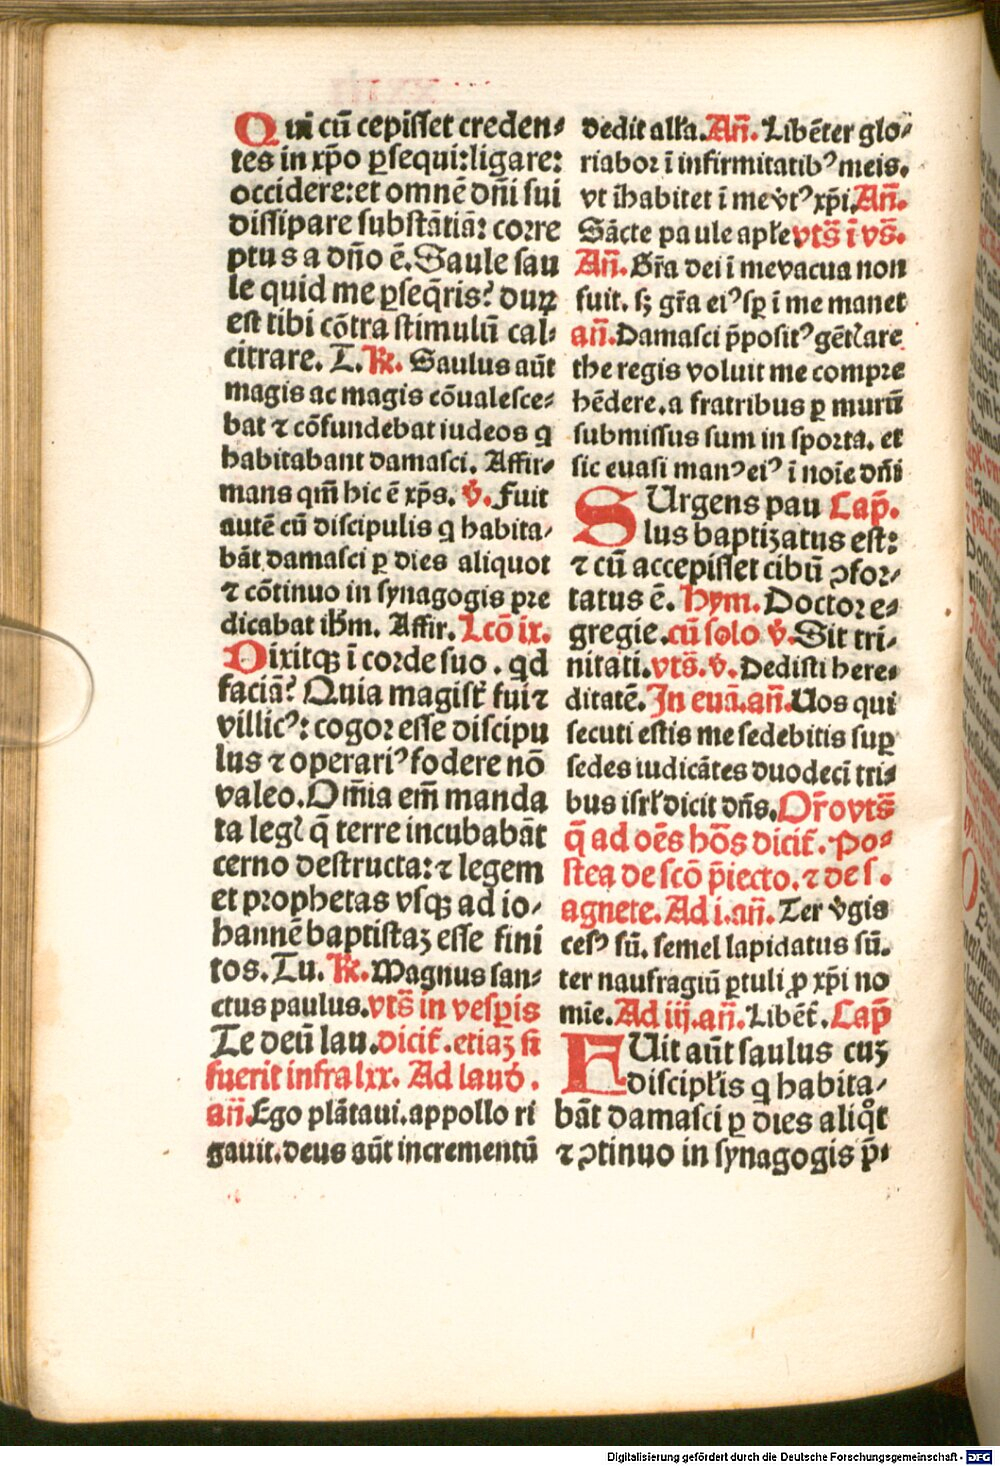 Qui cū cepiſſet creden⸗
tes in xp̄o ꝑſequi: ligare:
occidere: et omnē dn̄i ſui
diſſipare ſubſtātiā: corre
ptus a dn̄o ē. Saule ſau
le quid me ꝑſeq̄ris? durū
eſt tibi cōtra ſtimulū cal⸗
citrare. T. R. Saulus aūt
magis ac magis cōualeſce⸗
bat ⁊ cōfundebat iudeos q
habitabant damaſci. Affir⸗
mans qm̄ hic ē xp̄s. v̄. Fuit
autē cū diſcipulis q habita⸗
bāt damaſci ꝑ dies aliquot
⁊ cōtinuo in ſynagogis pre
dicabat ihm̄. Affir. Lcō ix.
Dixitqꝫ ī corde ſuo . qd
faciā? Quia magiſt̄ fui ⁊
villicꝰ: cogor eſſe diſcipu
lus ⁊ operariꝰ fodere nō
valeo. Om̄ia em̄ manda
ta legꝭ q̄ terre incubabāt
cerno deſtructa: ⁊ legem
et prophetas vſqꝫ ad io⸗
hannē baptiſtaꝫ eſſe fini
tos. Tu. R. Magnus ſan⸗
ctus paulus. vts̄ in veſꝑis
Te deū lau. dicit̄. etiaꝫ ſi
fuerit infra lxx. Ad laud̄ .
an̄. Ego plātaui. appollo ri
gauit. deus aūt incrementū
dedit all'a. An̄. Libēter glo⸗
riabor ī infirmitatibꝰ meis.
vt īhabitet ī me v̇tꝰ xp̄i. An̄.
Sācte paule aple vts̄ ī vs̄.
An̄. Gr̄a dei ī me vacua non
fuit. ſꝫ gr̄a eiꝰ ſꝑ ī me manet
an̄. Damaſci p̄poſitꝰ gētꝭ are
the regis voluit me compre
hēdere. a fratribus ꝑ murū
ſubmiſſus ſum in ſporta. et
ſic euaſi manꝰ eiꝰ ī noīe dn̄i
SUrgens pau Cap̄.
lus baptiꝫatus eſt:
⁊ cū accepiſſet cibū ꝯfor⸗
tatus ē. Hym. Doctor e⸗
gregie. cū ſolo v̄. Sit tri⸗
nitati. vts̄. v̄. Dediſti here⸗
ditatē. In euā. an̄. Uos qui
ſecuti eſtis me ſedebitis ſuꝑ
ſedes iudicātes duodecī tri⸗
bus iſrl' dicit dn̄s. Or̄o vts̄
q̄ ad oēs hōs dicit̄. Po⸗
ſtea de ſcō p̄iecto. ⁊ de ſ.
agnete. Ad i. an̄. Ter v̇gis
ceſꝰ ſū. ſemel lapidatus ſū.
ter naufragiū ꝑtuli ꝓ xp̄i no
mīe. Ad iij. an̄. Libēt̄. Cap̄
FUit aūt ſaulus cuꝫ
diſcipl'is q habita⸗
bāt damaſci ꝑ dies aliqͦt
⁊ ꝯtinuo in ſynagogis p̄⸗
Digitalisierung gefördert durch die Deutsche Forschungsgemeinschaft - DFG